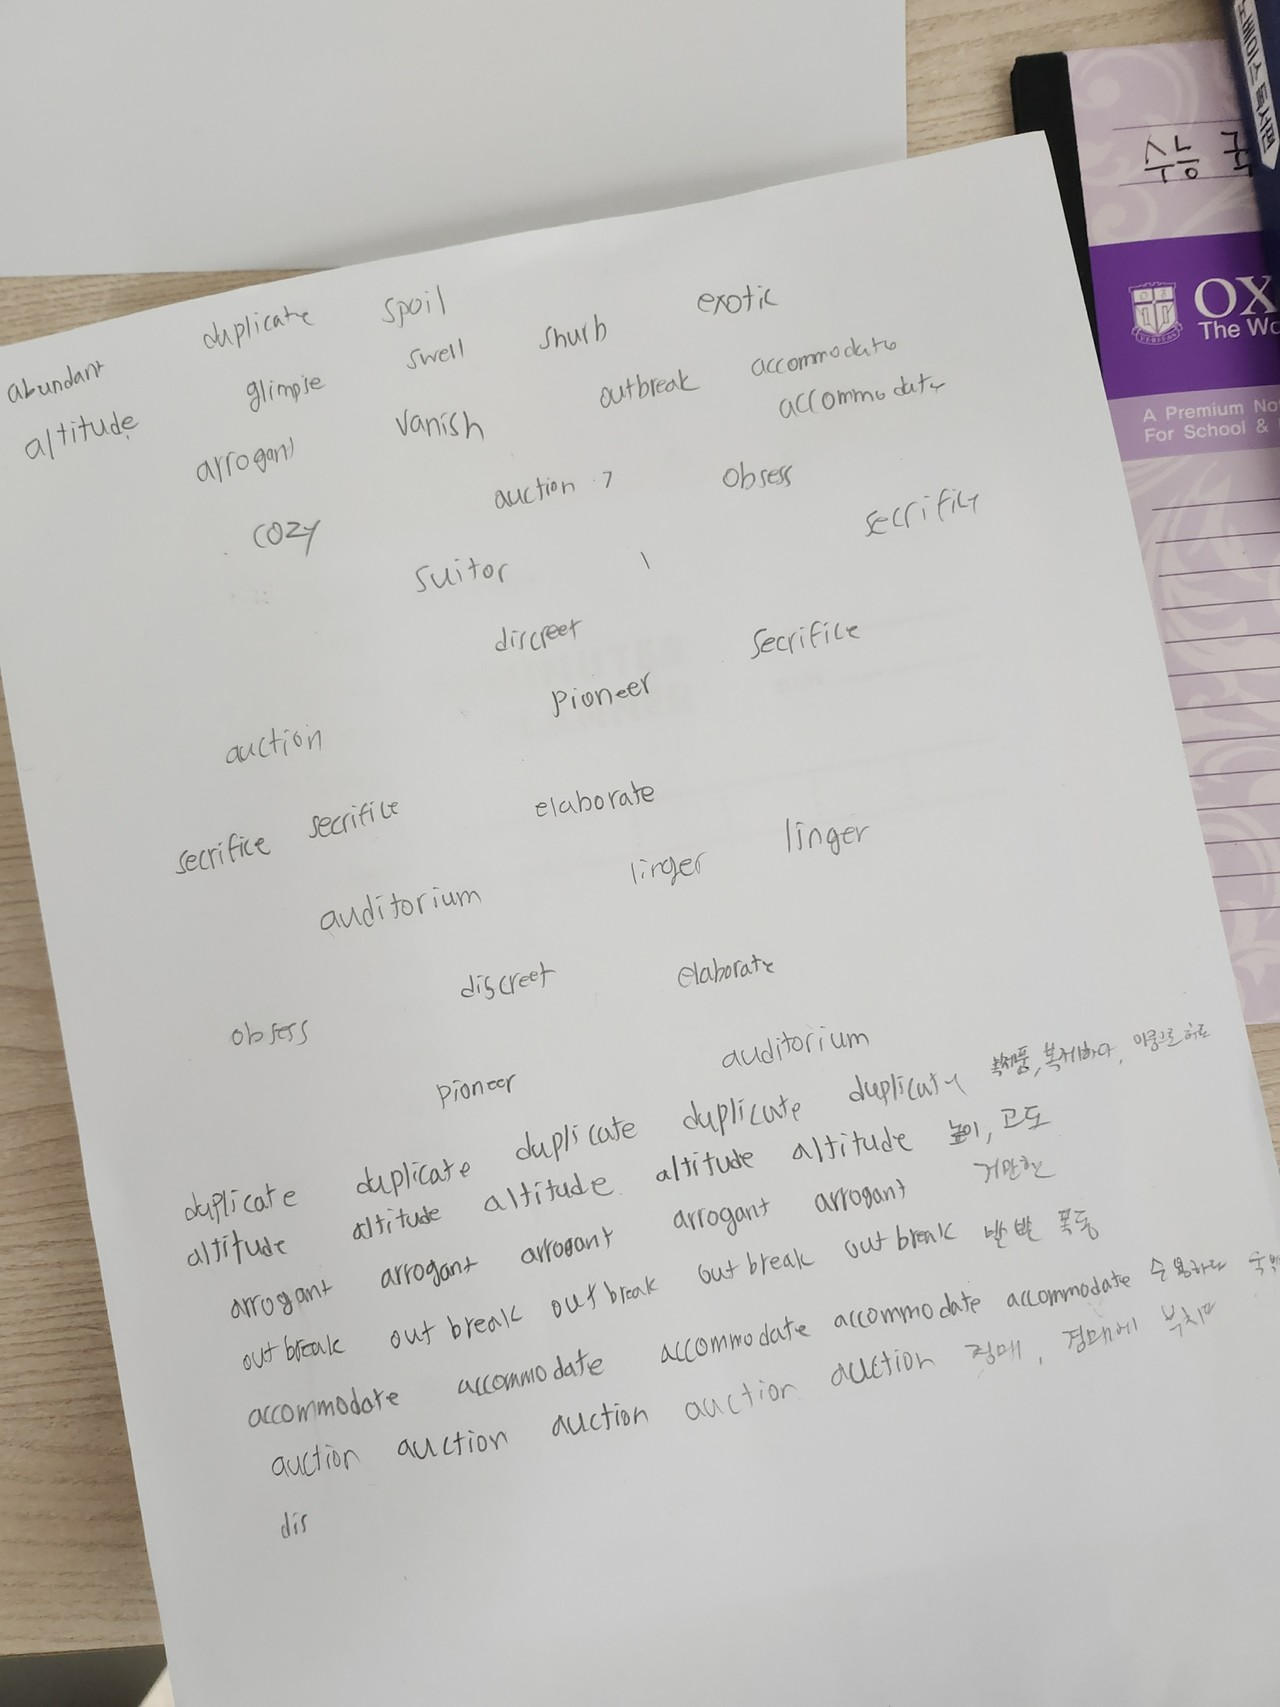 노베이스 독서편
수능 국
OX
The Wo
A Premium No
For School &
duplicate spoil exotic
abundant glimpse swell shurb
altitude arrogant vanish outbreak accommodate
accommodate
cozy auction obsess
suitor secrifice
discreet secrifice
pioneer
auction
secrifice secrifice elaborate
auditorium linger linger
obsess discreet elaborate
pioneer auditorium
duplicate duplicate duplicate duplicate duplicate 복제품, 복제하다, 이중으로
altitude altitude altitude altitude altitude 높이, 고도
arrogant arrogant arrogant arrogant arrogant 거만한
out break out break out break out break out break 발발 폭동
accommodate accommodate accommodate accommodate accommodate 수용하다
auction auction auction auction auction 경매, 경매에 부치다
dis